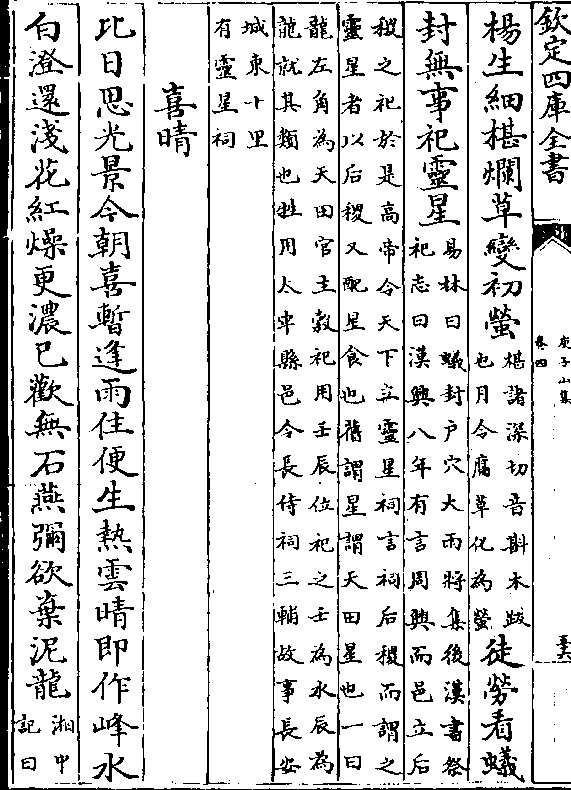 欽定四庫全書
庾子山集
卷四
楊生細椹爛草變初螢
椹諸深切音斟木跋
也月令腐草化為螢
徒勞看蟻
封無事祀靈星
易林曰蟻封戶穴大雨將集後漢書祭
祀志曰漢興八年有言周興而邑立后
稷之祀於是高帝令天下立靈星祠言祠后稷而謂之
靈星者以后稷又配星食也舊謂星謂天田星也一曰
龍左角為天田官主穀祀用壬辰位祀之壬為水辰為
龍就其類也牲用太牢縣邑令長侍祠三輔故事長安
城東十里
有靈星祠
喜晴
比日思光景今朝喜暫逢雨住便生熱雲晴即作峰水
白澄還淺花紅燥更濃已歡無石燕彌欲棄泥龍
湘中
記曰